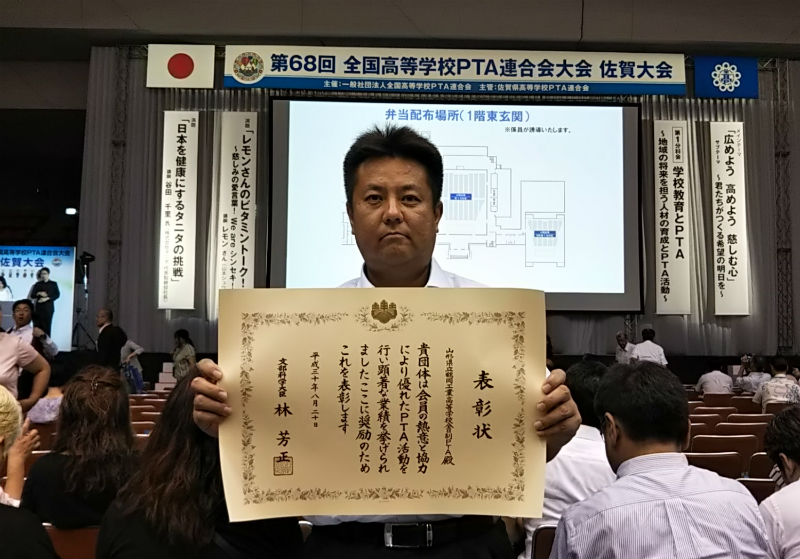 第68回 全国高等学校PTA連合会大会 佐賀大会
主催:一般社団法人全国高等学校PTA連合会 主管:佐賀県高等学校PTA連合会
弁当配布場所(1階東玄関)
※係員が誘導いたします。
メインテーマ
「広めよう 高めよう 慈しむ心」
サブテーマ
~君たちがつくる希望の明日を~
第1分科会
学校教育とPTA
~地域の将来を担う人材の育成とPTA活動~
「レモンさんのビタミントーク!
~慈しみの愛言葉! We are シンセキ!
講師 レモンさん
「日本を健康にするタニタの挑戦」
講師 谷田 千里 氏
佐賀大会
表彰状
山形県立鶴岡工業高等学校PTA殿
貴団体は会員の熱意と協力
により優れたPTA活動を
行い顕著な業績を挙げられ
ましたここに奨励のため
これを表彰します
平成三十年八月二十日
文部科学大臣 林 芳正